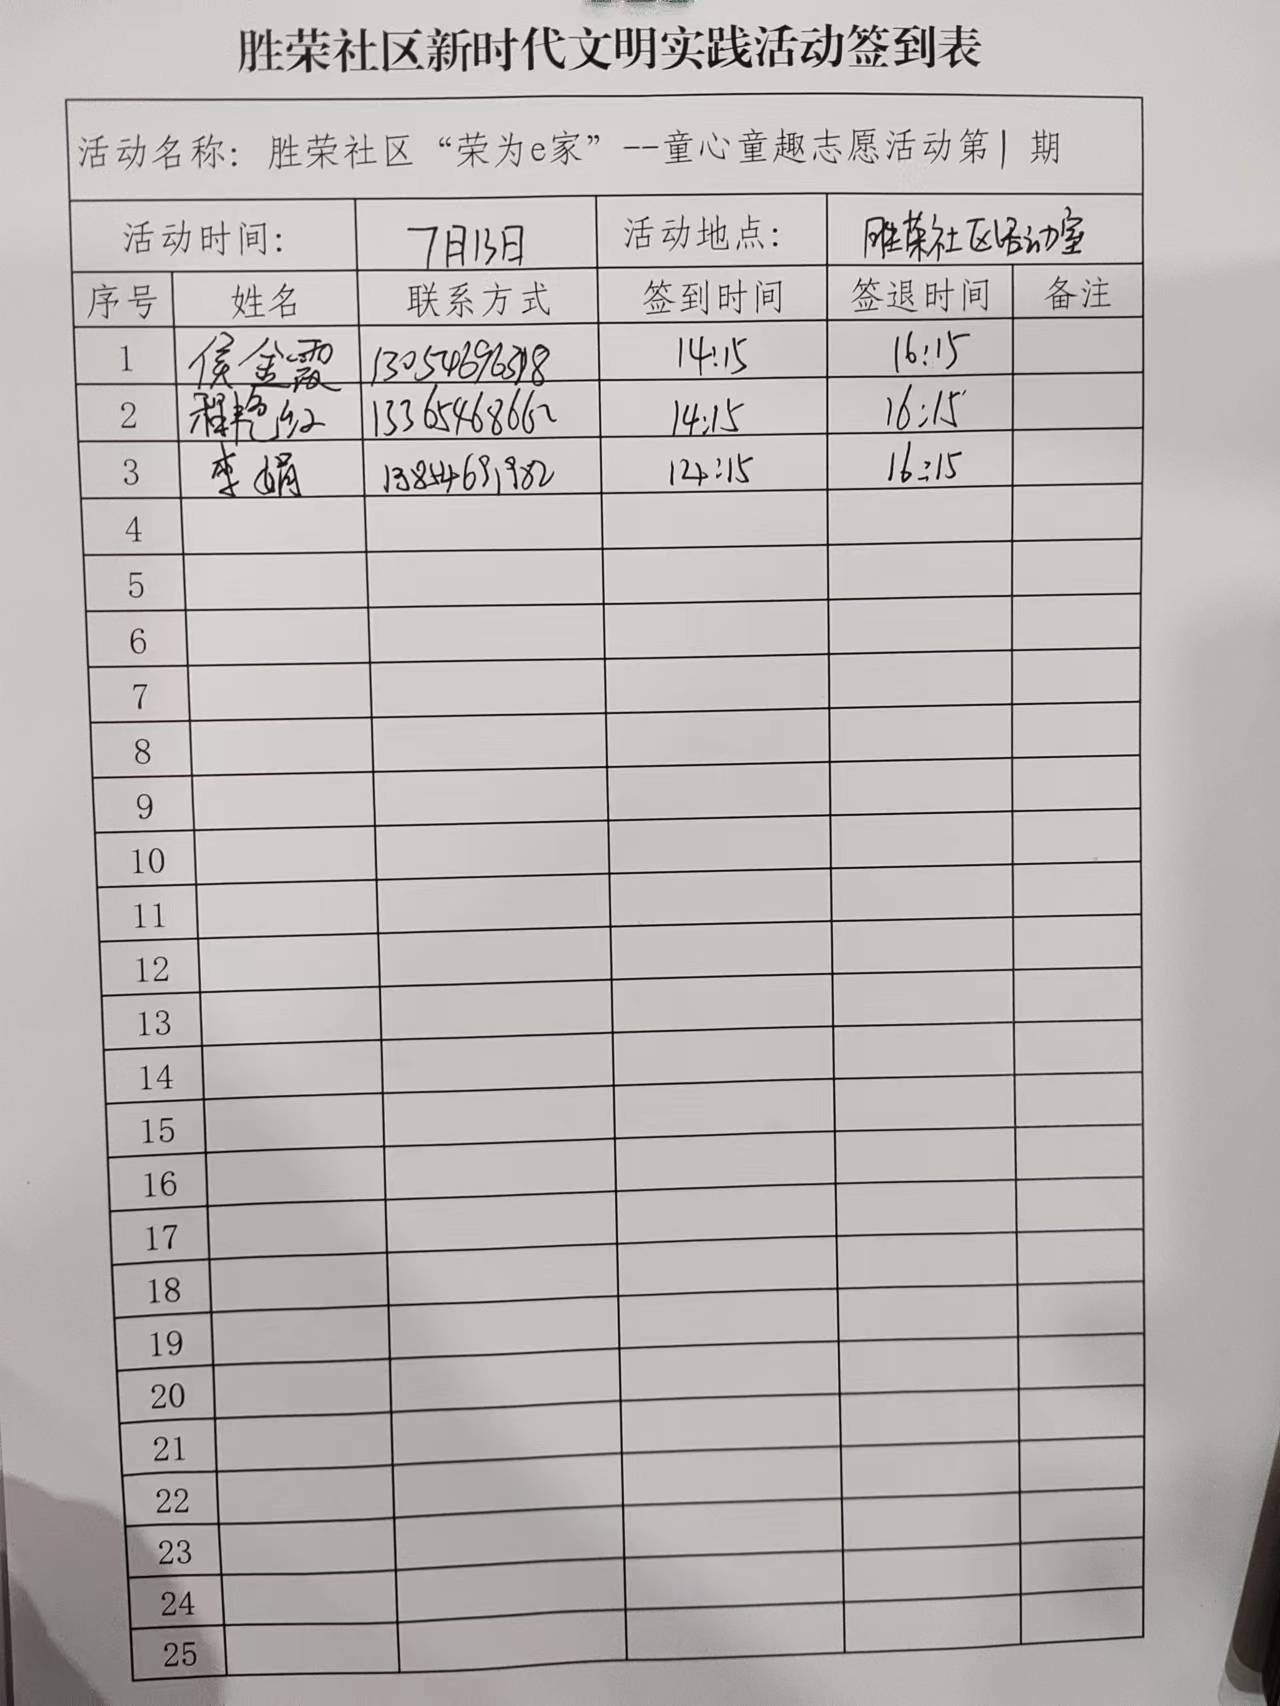 胜荣社区新时代文明实践活动签到表
活动名称：胜荣社区“荣为e家”--童心童趣志愿活动第1期
活动时间： 7月13日 活动地点： 胜荣社区活动室
序号 姓名 联系方式 签到时间 签退时间 备注
1 侯金霞 14:15 16:15
2 程艳红 13365468662 14:15 16:15
3 李娟 13854691982 14:15 16:15
4
5
6
7
8
9
10
11
12
13
14
15
16
17
18
19
20
21
22
23
24
25